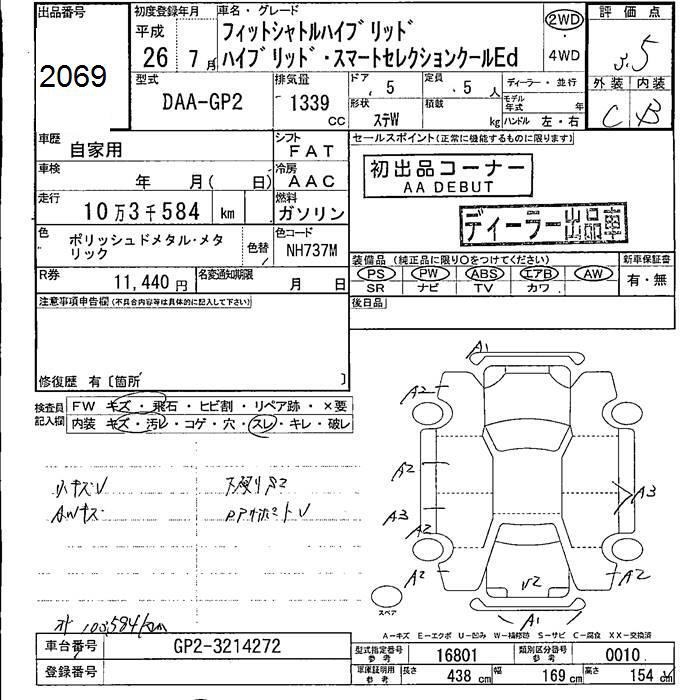 出品番号
2069
初度登録年月
平成
26 7 月
車名・グレード
フィットシャトルハイブリッド
ハイブリッド・スマートセレクションクールEd
2WD
・
4WD
評価点
3.5
外装 内装
C B
型式
DAA-GP2
排気量
1339
CC
ドア
5
形状
ステW
定員
5 人
積載
kg
ディーラー・並行
モデル年式 年
ハンドル 左・右
車歴
自家用
シフト
FAT
車検
年 月( 日)
冷房
AAC
走行
10万3千584 km
燃料
ガソリン
色
ポリッシュドメタル・メタリック
色替
色コード
NH737M
R券
11,440 円
名変通知期限
月 日
セールスポイント(正常に機能するものに限ります)
初出品コーナー
AA DEBUT
ディーラー出品車
装備品(純正品に限り○をつけてください)
PS PW ABS エアB AW
SR ナビ TV カワ
新車保証書
有・無
後日品
注意事項申告欄(不具合内容等は具体的に記入して下さい)
修復歴 有〔箇所 〕
検査員記入欄
FW キズ・飛石・ヒビ割・リペア跡・×要
内装 キズ・汚レ・コゲ・穴・スレ・キレ・破レ
小キズU
AWキズ
下廻りS2
103,584km
A1
A2
A2
A3
A2
A2
A3
A2
U2
A1
スペア
A－キズ E－エクボ U－凹み W－補修跡 S－サビ C－腐食 XX－交換済
車台番号 GP2-3214272
登録番号
型式指定番号 参考 16801
類別区分番号 参考 0010
車庫証明用 参考
長さ 438 cm
幅 169 cm
高さ 154 cm